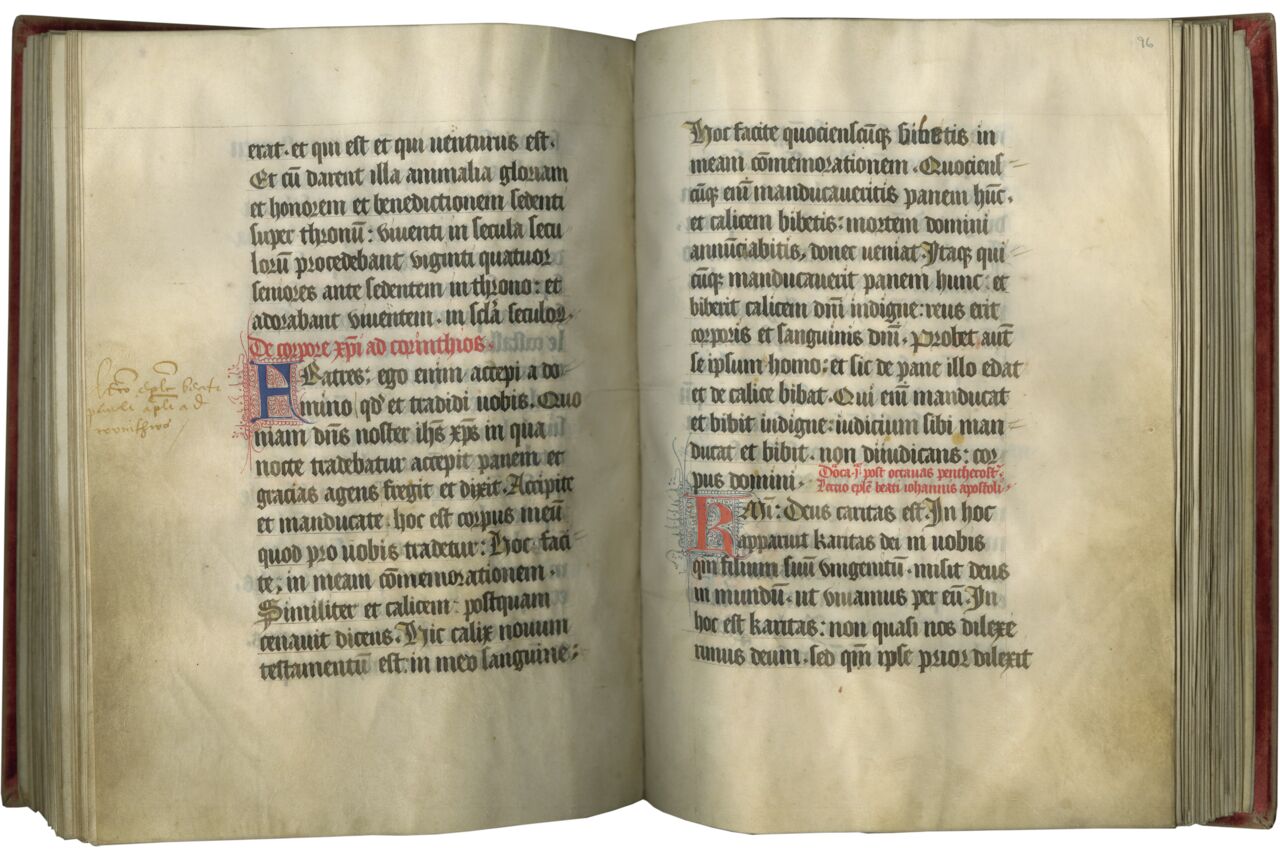 erat. et qui est et qui uenturus est.
Et cū darent illa animalia gloriam
et honorem et benedictionem sedenti
super thronū: viuenti in secula secu
lorū procedebant viginti quatuor
seniores ante sedentem in throno: et
adorabant viuentem. in scl̄a seculoꝝ.
De corpore xp̄i ad corinthios.
FRatres: ego enim accepi a do
mino qd̓ et tradidi uobis. Quo
niam dn̄s noster ih̄s xp̄s in qua
nocte tradebatur accepit panem et
gracias agens fregit et dixit. Accipite
et manducate. hoc est corpus meū
quod pro uobis tradetur: Hoc faci
te, in meam cōmemorationem.
Similiter et calicem postquam
cenauit dicens. Hic calix nouum
testamentū est. in meo sanguine:
lc̄o ep̄le beati
pauli apl̄i ad
corinthios
96
Hoc facite quociensꝯcūqꝫ bibetis in
meam cōmemorationem. Quociens
cūqꝫ enī manducaueritis panem hūc.
et calicem bibetis: mortem domini
annūciabitis, donec ueniat. Itaqꝫ qui
cūqꝫ manducauerit panem hunc: et
biberit calicem dn̄i indigne: reus erit
corporis et sanguinis dn̄i. Probet aut̄
se ipsum homo: et sic de pane illo edat
et de calice bibat. Qui enī manducat
et bibit indigne: iudicium sibi man
ducat et bibit. non diiudicans: cor
pus domini.
Dn̄ca .i. post octauas penthecost̄.
Leccio ep̄le beati iohannis apostoli.
KMī: Deus caritas est. In hoc
apparuit karitas dei in uobis
qm̄ filium suū vnigenitū. misit deus
in mundū. ut viuamus per eū. In
hoc est karitas: non quasi nos dilexe
rimus deum. sed qm̄ ipse prior dilexit